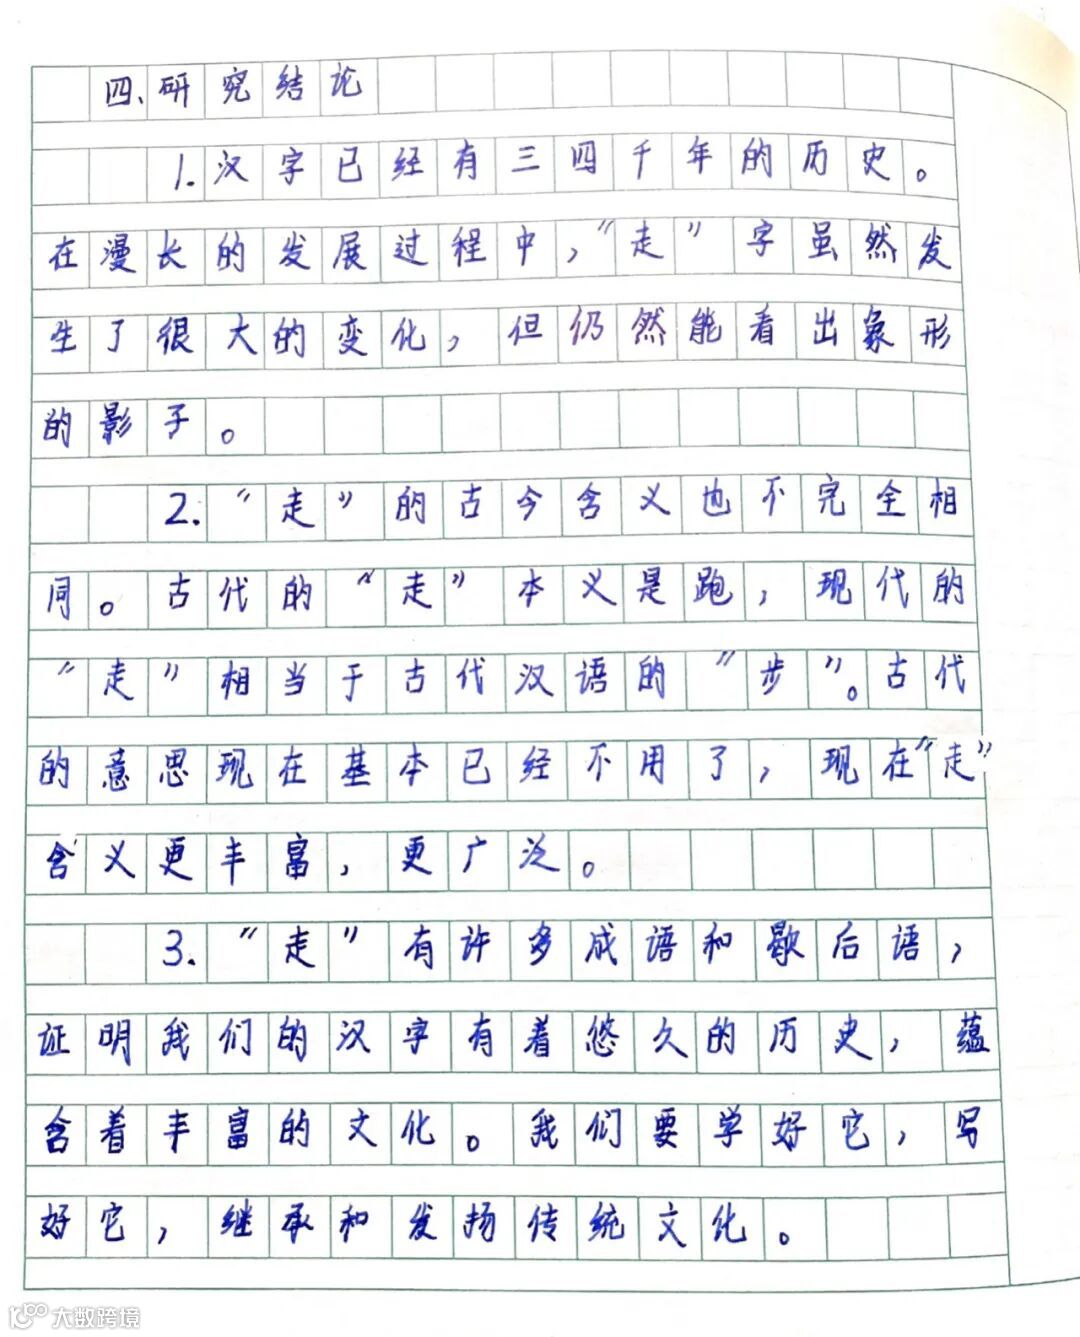 四、研究结论
1.汉字已经有三四千年的历史。
在漫长的发展过程中，“走”字虽然发
生了很大的变化，但仍然能看出象形
的影子。
2.“走”的古今含义也不完全相
同。古代的“走”本义是跑，现代的
“走”相当于古代汉语的“步”。古代
的意思现在基本已经不用了，现在“走”
含义更丰富，更广泛。
3.“走”有许多成语和歇后语，
证明我们的汉字有着悠久的历史，蕴
含着丰富的文化。我们要学好它，写
好它，继承和发扬传统文化。
大数跨境